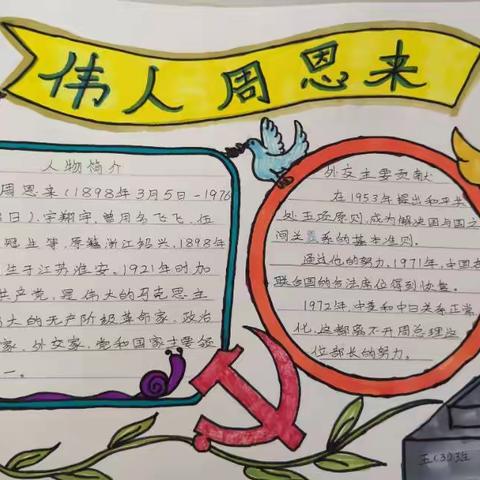 伟人周恩来
人物简介
周恩来(1898年3月5日-1976
8日),字翔宇,曾用名飞飞、伍
冠生等,原籍浙江绍兴,1898年
生于江苏淮安。1921年时加
共产党,是伟大的马克思主
大的无产阶级革命家、政治
家、外交家,党和国家主要领
一。
外交主要贡献
在1953年提出和平共
处五项原则,成为解决国与国之
间关系的基本准则。
通过他的努力,1971年,中国在
联合国的合法席位得到恢复。
1972年,中美和中日关系正常
化,这都离不开周总理这
位部长的努力。
五(3)班